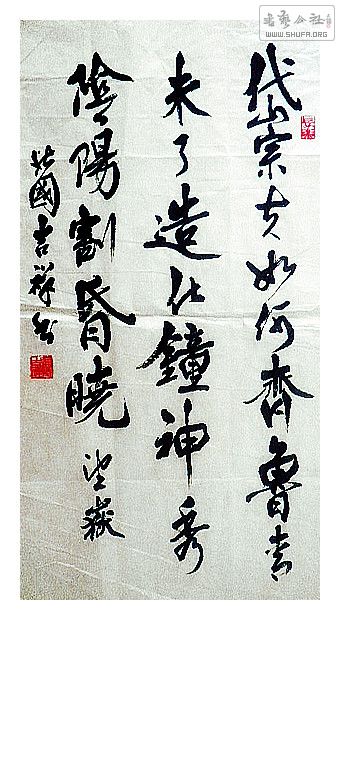 書藝公社
WWW.SHUFA.ORG
岱宗夫如何齊魯青
未了造化鐘神秀
陰陽割昏曉 望嶽
北國吉祥书